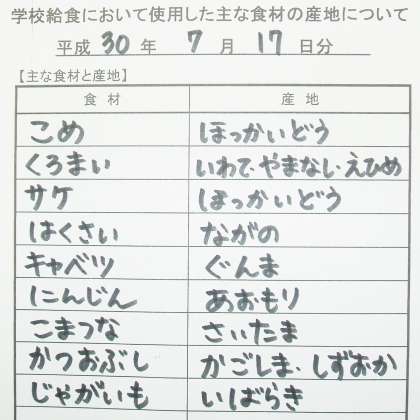 学校給食において使用した主な食材の産地について
平成 30 年 7 月 17 日分
【主な食材と産地】
食材 産地
こめ ほっかいどう
くろまい いわて・やまなし・えひめ
サケ ほっかいどう
はくさい ながの
キャベツ ぐんま
にんじん あおもり
こまつな さいたま
かつおぶし かごしま・しずおか
じゃがいも いばらき